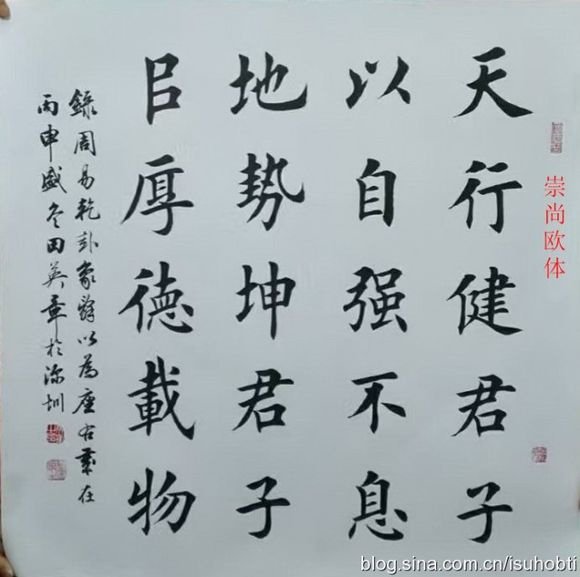 天行健君子
以自强不息
地势坤君子
㠯厚德載物
錄周易乾卦象辞以為座右歲在
丙申盛冬田英章於深圳
崇尚欧体
blog.sina.com.cn/isuhobti